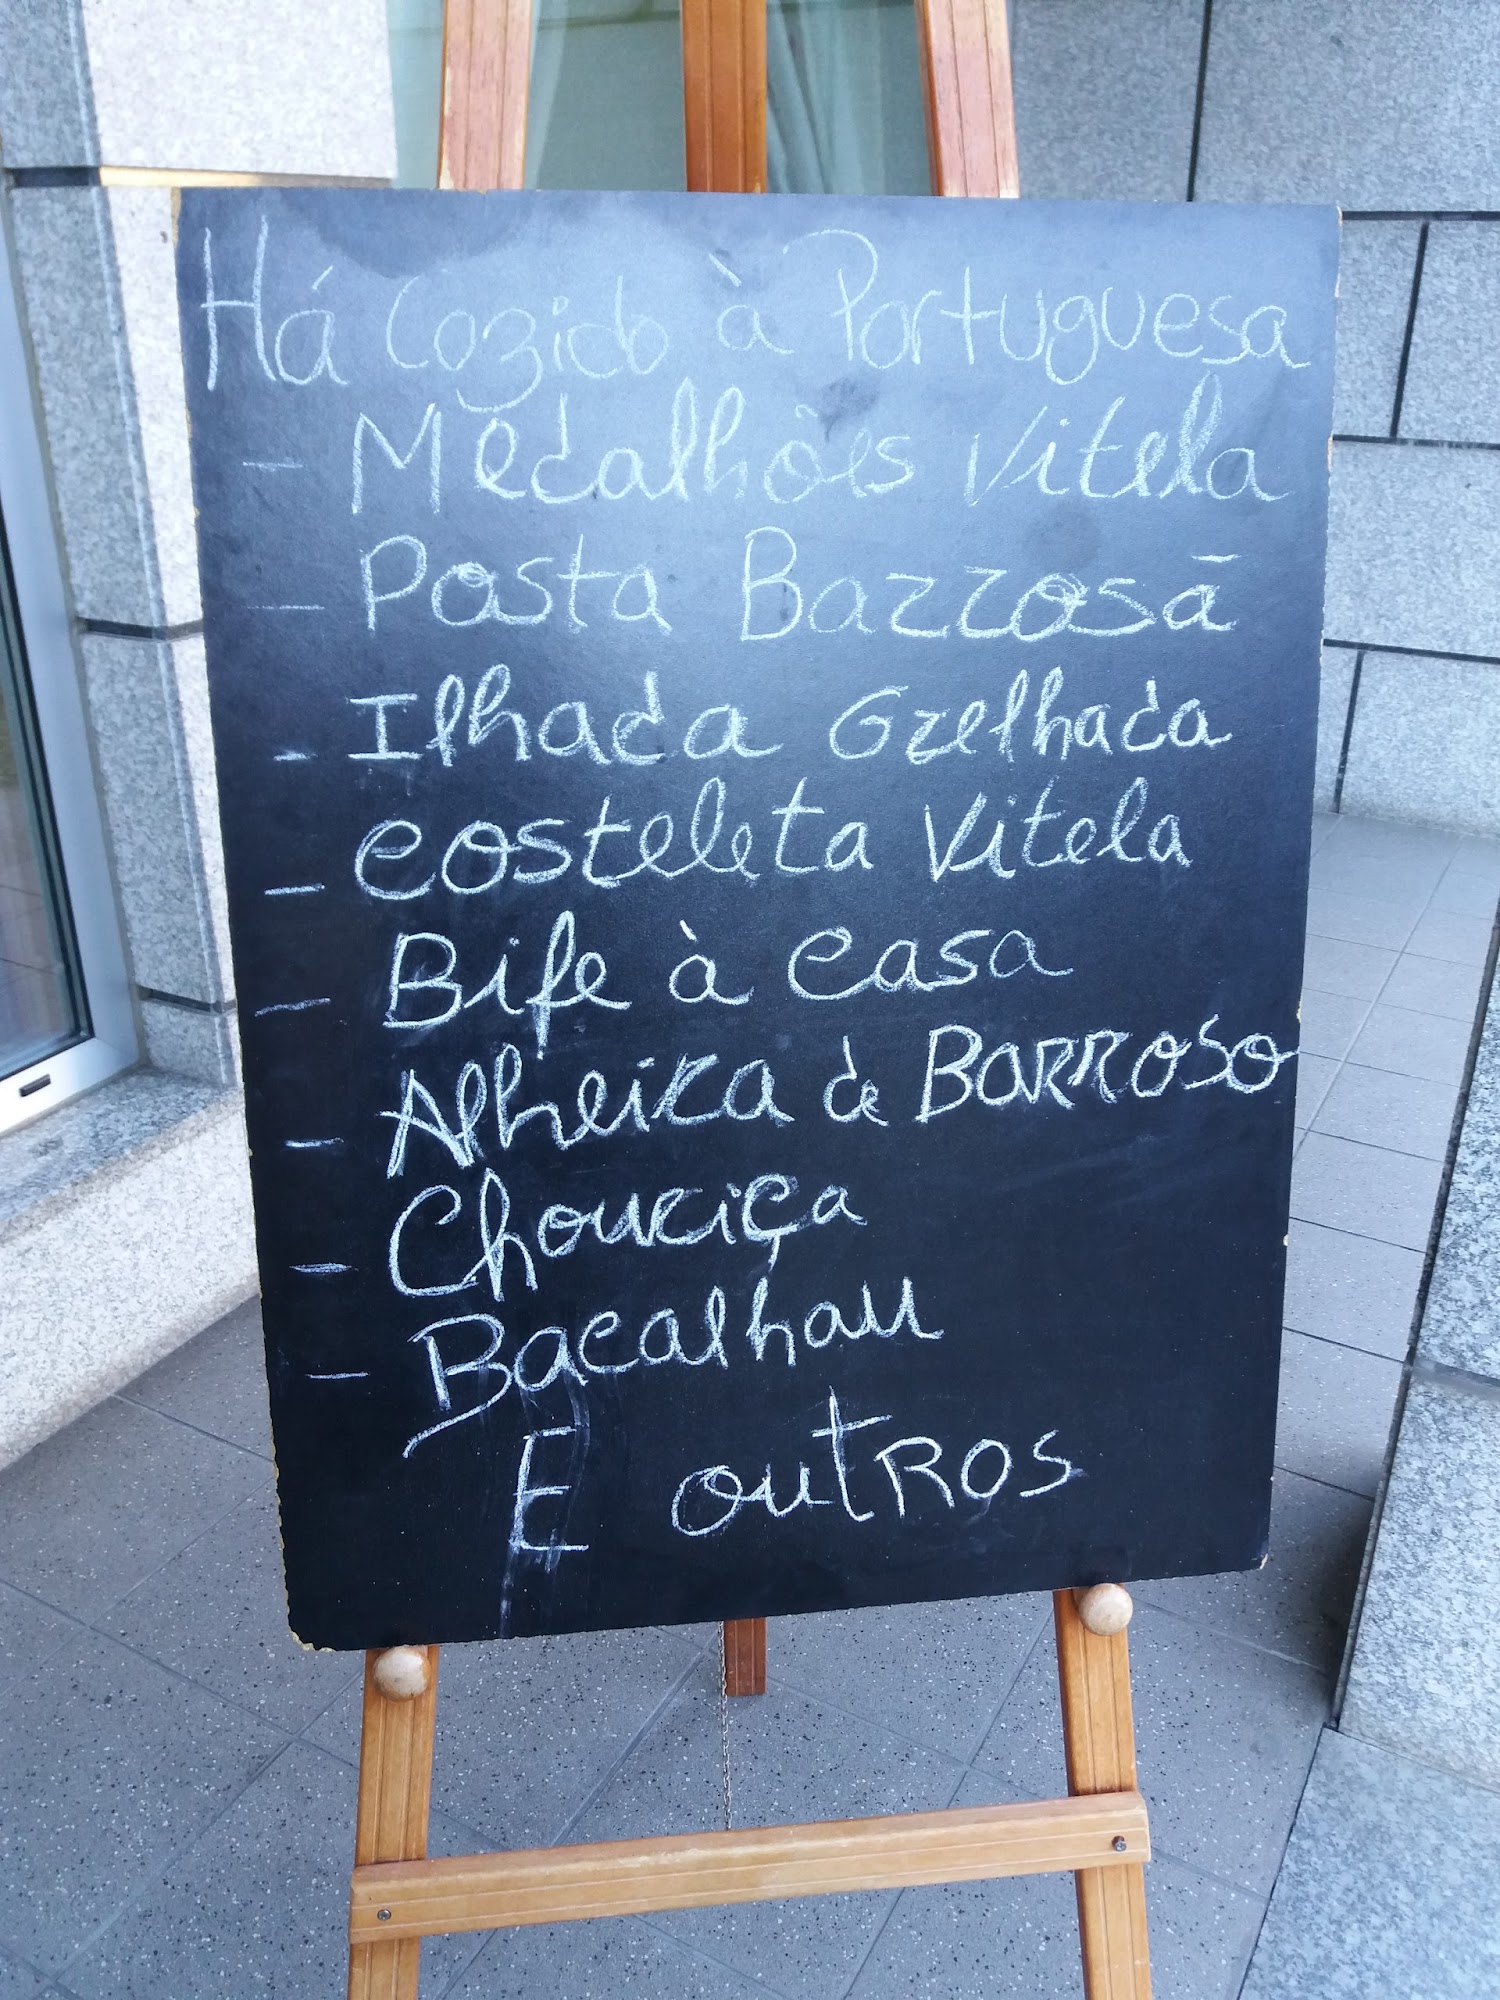 Há Cozido à Portuguesa
- Medalhões Vitela
- Posta Barrosã
- Ilhada Grelhada
- Costeleta Vitela
- Bife à Casa
- Alheira de BARROSO
- Chouriça
- Bacalhau
E outROS